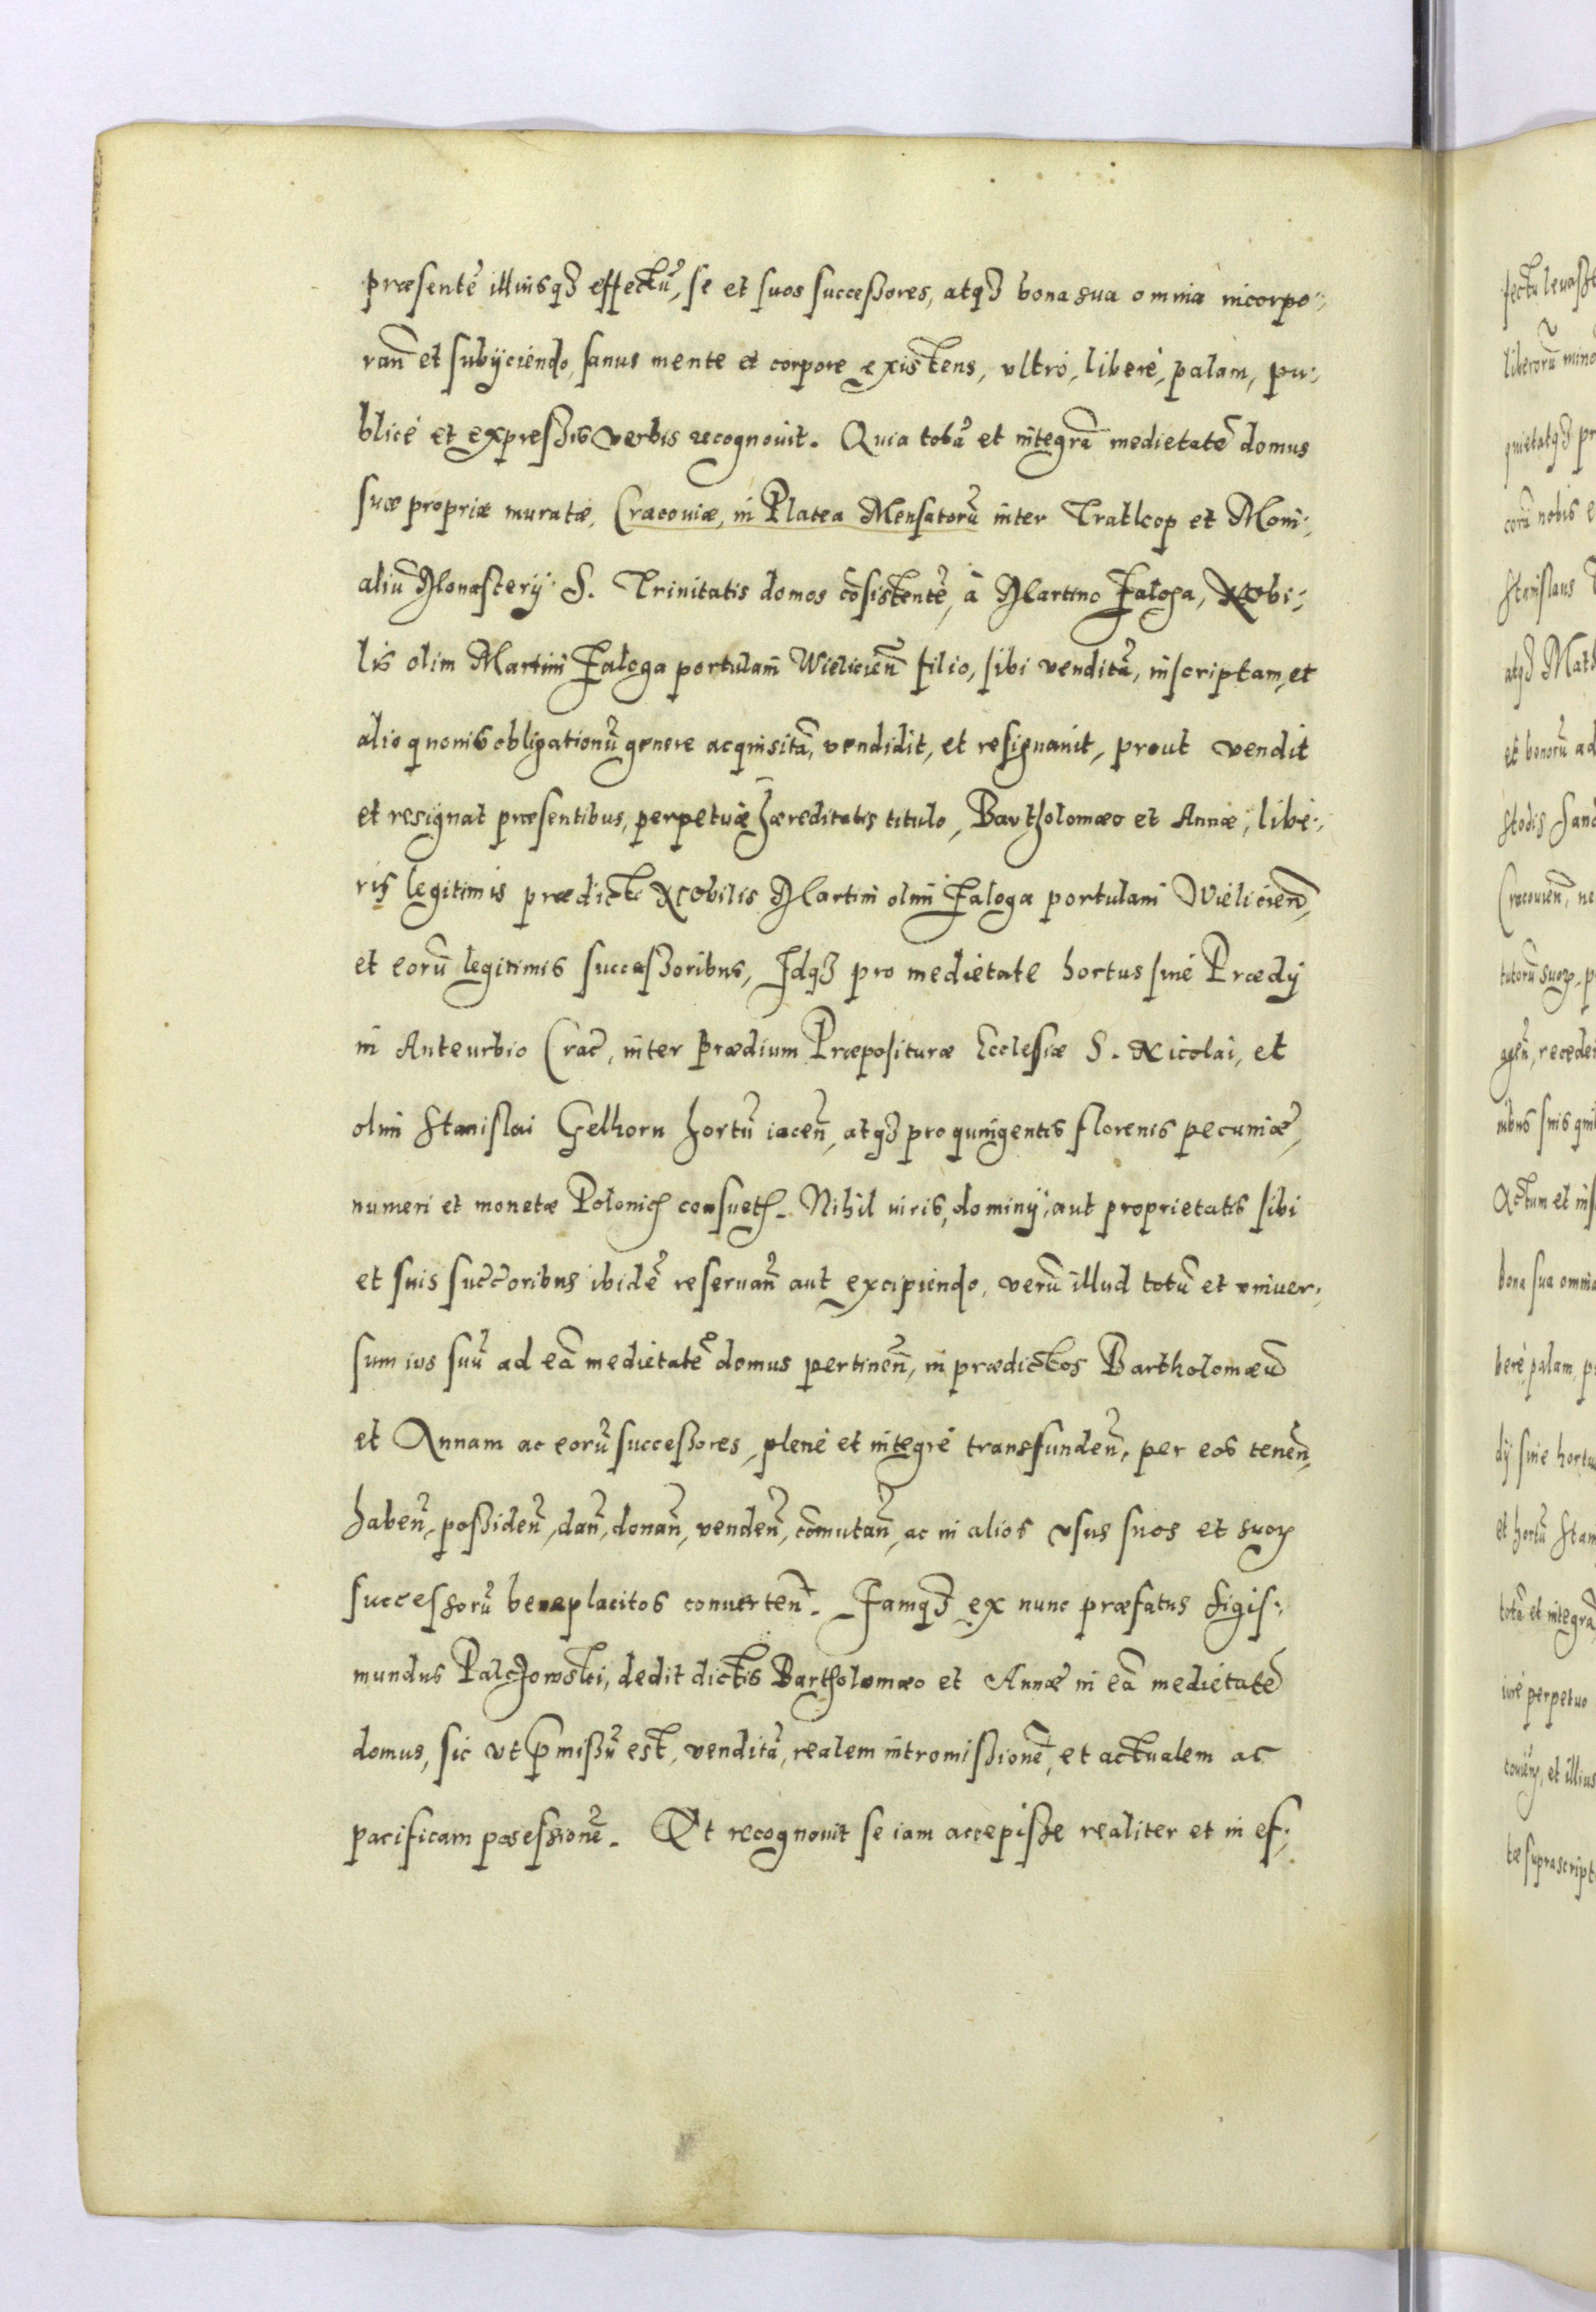 præsentē illiusqȝ effectū, se et suos successores, atqȝ bona sua omnia incorpo:
rañ et subijciendo, sanus mente et corpore existens, vltrò, liberè, palam, pu:
blicè et expressis verbis recognouit. Quia totā et integrā medietatē domus
suæ propriæ muratæ, Cracouiæ, in Platea Mensatorū inter Tratkop et Moni:
aliū Monasterij S. Trinitatis domos cōsistentē, à Martino Faloga, Nobi:
lis olim Martini Faloga portulani Wielicieñ filio, sibi venditā, inscriptam, et
alio quouis obligationū genere acquisitā, vendidit, et resignauit, prout vendit
et resignat præsentibus, perpetuæ hæreditatis titulo, Bartholomæo et Annæ, libe:
ris legitimis prædicti Nobilis Martini olim Faloga portulani Wielicieñ,
et eorū legitimis successoribus, Idqȝ pro medietate hortus siue Prædij
in Anteurbio Crac̄, inter prædium Præposituræ Ecclesiæ S. Nicolai, et
olim Stanislai Gelhorn hortū iaceñ, atqȝ pro quingentis florenis pecuniæ,
numeri et monetæ Polonicꝭ consuetꝭ. Nihil iuris, dominij, aut proprietatis sibi
et suis succ̄oribus ibidē reseruañ aut excipiendo, verū illud totū et vniuer:
sum ius suū ad eā medietatē domus pertineñ, in prædictos Bartholomæū
et Annam ac eorū successores, plenè et integrè transfundeñ, per eos teneñ,
habeñ, possideñ, dañ, donañ, vendeñ, cōmutañ, ac in alios vsus suos et suoꝝ
successorū beneplacitos conuerteñ. Iamqȝ ex nunc præfatus Sigis:
mundus Palczowski, dedit dictis Bartholomæo et Annæ in eā medietatē
domus, sic vt p̄missū est, venditā, realem intromissionē, et actualem ac
pacificam possessionē. Et recognouit se iam accepisse realiter et in ef: